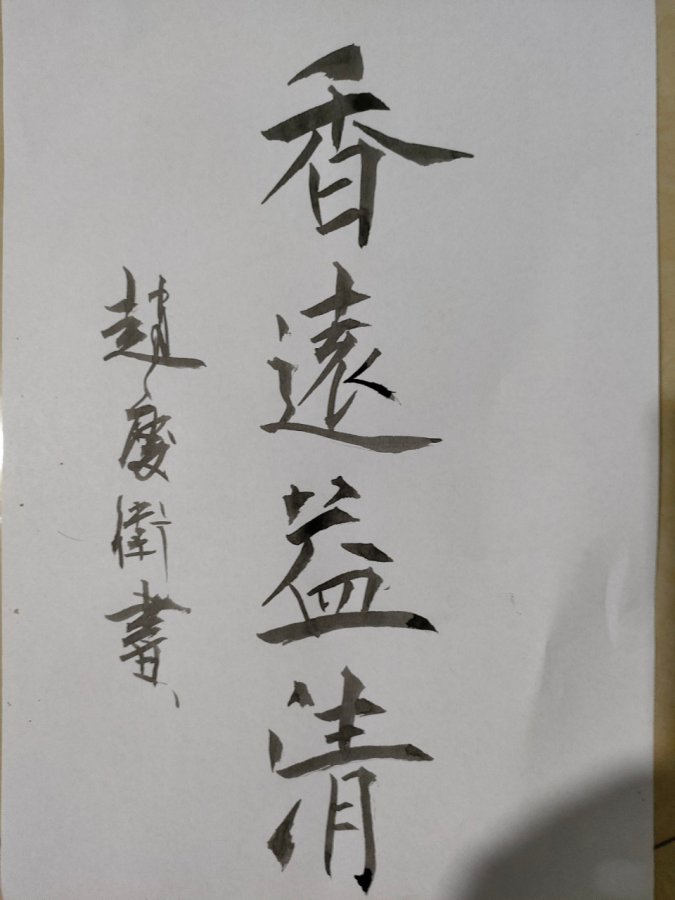 香遠益清
趙慶衛書